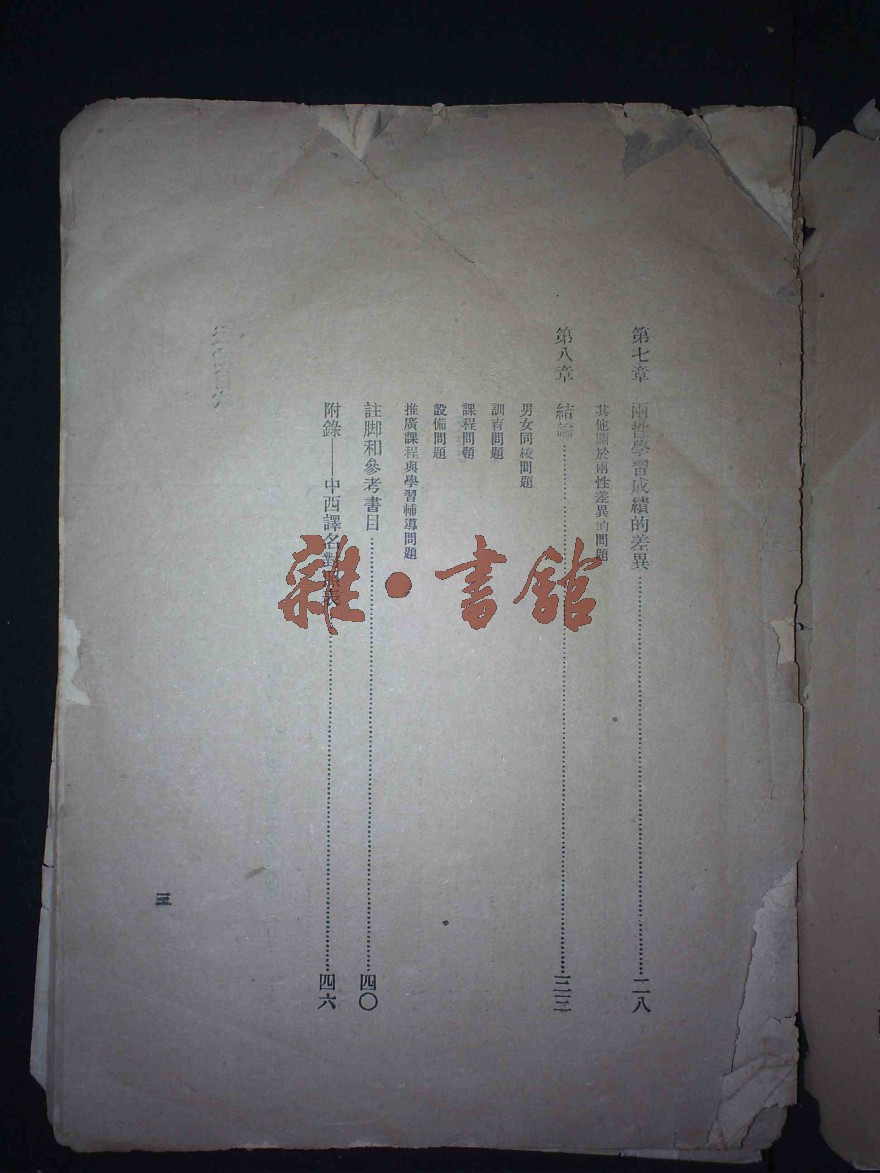 第七章 兩性學習成績的差異……二八
其他關於兩性差異的問題
第八章 結論……三三
男女同校問題
訓育問題
課程問題
設備問題
推廣課程與學習輔導問題
註脚和參考書目……四〇
附錄——中西譯名對照表……四六
三
雜·書館